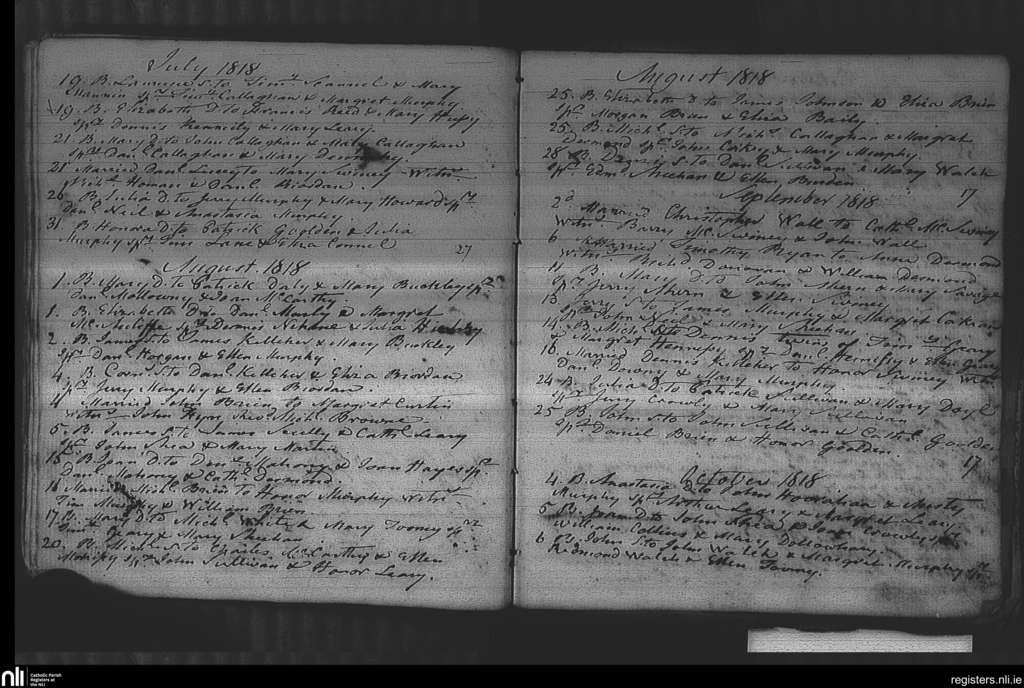 July 1818
19. B. Laurence S. to Timy. Scannel & Mary
spr. Timy. Callaghan & Margret Murphy
19. B. Elizabeth D. to Francis Reed & Mary
Spr. Dennis Kennedy & Mary Leary.
21. B. Mary D. to John Callaghan & Mary Callaghan
Spr. Danl. Callaghan & Mary
21 Married Danl. Lucey to Mary Swiney Witns.
Honan & Danl. Riordan.
26. B. Julia D. to Jerry Murphy & Mary Howard spr.
Danl. Neil & Anastasia Murphy.
31. B. Honora D. to Patrick Goolden & Julia
Murphy spr. Tim Lane & Eliza Connel
27
August 1818
1. B. Mary D. to Patrick Daly & Mary Buckley spr.
Danl. Mollowny & Joan McCarthy.
1. B. Elizabeth D. to Danl. & Margret
McAuliffe spr. Dennis & Julia
2. B. James S. to James Kelleher & Mary Buckley
Spr. Danl. Horgan & Ellen Murphy.
4. B. Corns. S. to Danl. Kelleher & Eliza Riordan
spr. Jerry Murphy & Ellen Riordan.
4 Married John Brien to Margret Curtin
Witns. John & Michl. Browne.
5. B. James S. to James & Cathe. Leary
spr. John Shea & Mary Martin
15. B. Joan D. to Denis Mahony & Joan Hayes spr.
Danl. Mahony & Cathe. Desmond.
16 Married Michl. Brien to Honor Murphy Witns.
Tim Murphy & William Brien
17. B. Mary D. to Michl. White & Mary Toomey spr.
Leary & Mary Sheehan
20. B. S. to Charles McCarthy & Ellen
spr. John Sullivan & Honor Leary.
August 1818
25. B. Elizabeth D. to James Johnson & Eliza Brien
spr. Morgan Brien & Eliza Baily.
25. B. Michl. S. to Michl. Callaghan & Margret
Desmond spr. John & Mary Murphy.
28 B. Dennis S. to Danl. Sulivan & Mary Walsh
Spr. Edmd. Sheehan & Ellen
17
September 1818
2d. Married Christopher Wall to Cathe. McSwiney
Witns. Barry McSwiney & John Wall
6 Married Timothy Ryan to Anna Desmond
Witns. Donovan & William Desmond
11 B. Mary D. to John Ahern & Mary Savage
spr. Jerry Ahern & Ellen Swiney
13 Jerry S. to James Murphy & Margret
spr. John Neil & Mary Sheehan
14. B. Michl. & Dennis twins of Timy. Leary
& Margret spr. Danl. & Ellen
16. Married Dennis Kelleher to Honor Swiney Witns.
Danl. Downy & Mary Murphy.
24 B. Julia D. to Patrick Sullivan & Mary Doyl
spr. Jerry Crowly & Mary Sullivan
25 B. John S. to John Sullivan & Cathe. Goolden
spr. Daniel Brien & Honor
Goolden.
17
October 1818
4. B. Anastasia D. to John & Misty
Murphy spr. Arthur Leary & Margret Leary
5 B. Joan D. to John Shea & Joan Crowly spr.
William Collins & Mary
6 B. John S. to John Walsh & Margret Murphy spr.
Redmond Walsh & Ellen Toomy.
nli
Catholic Parish
Registers at
the NLI
registers.nli.ie